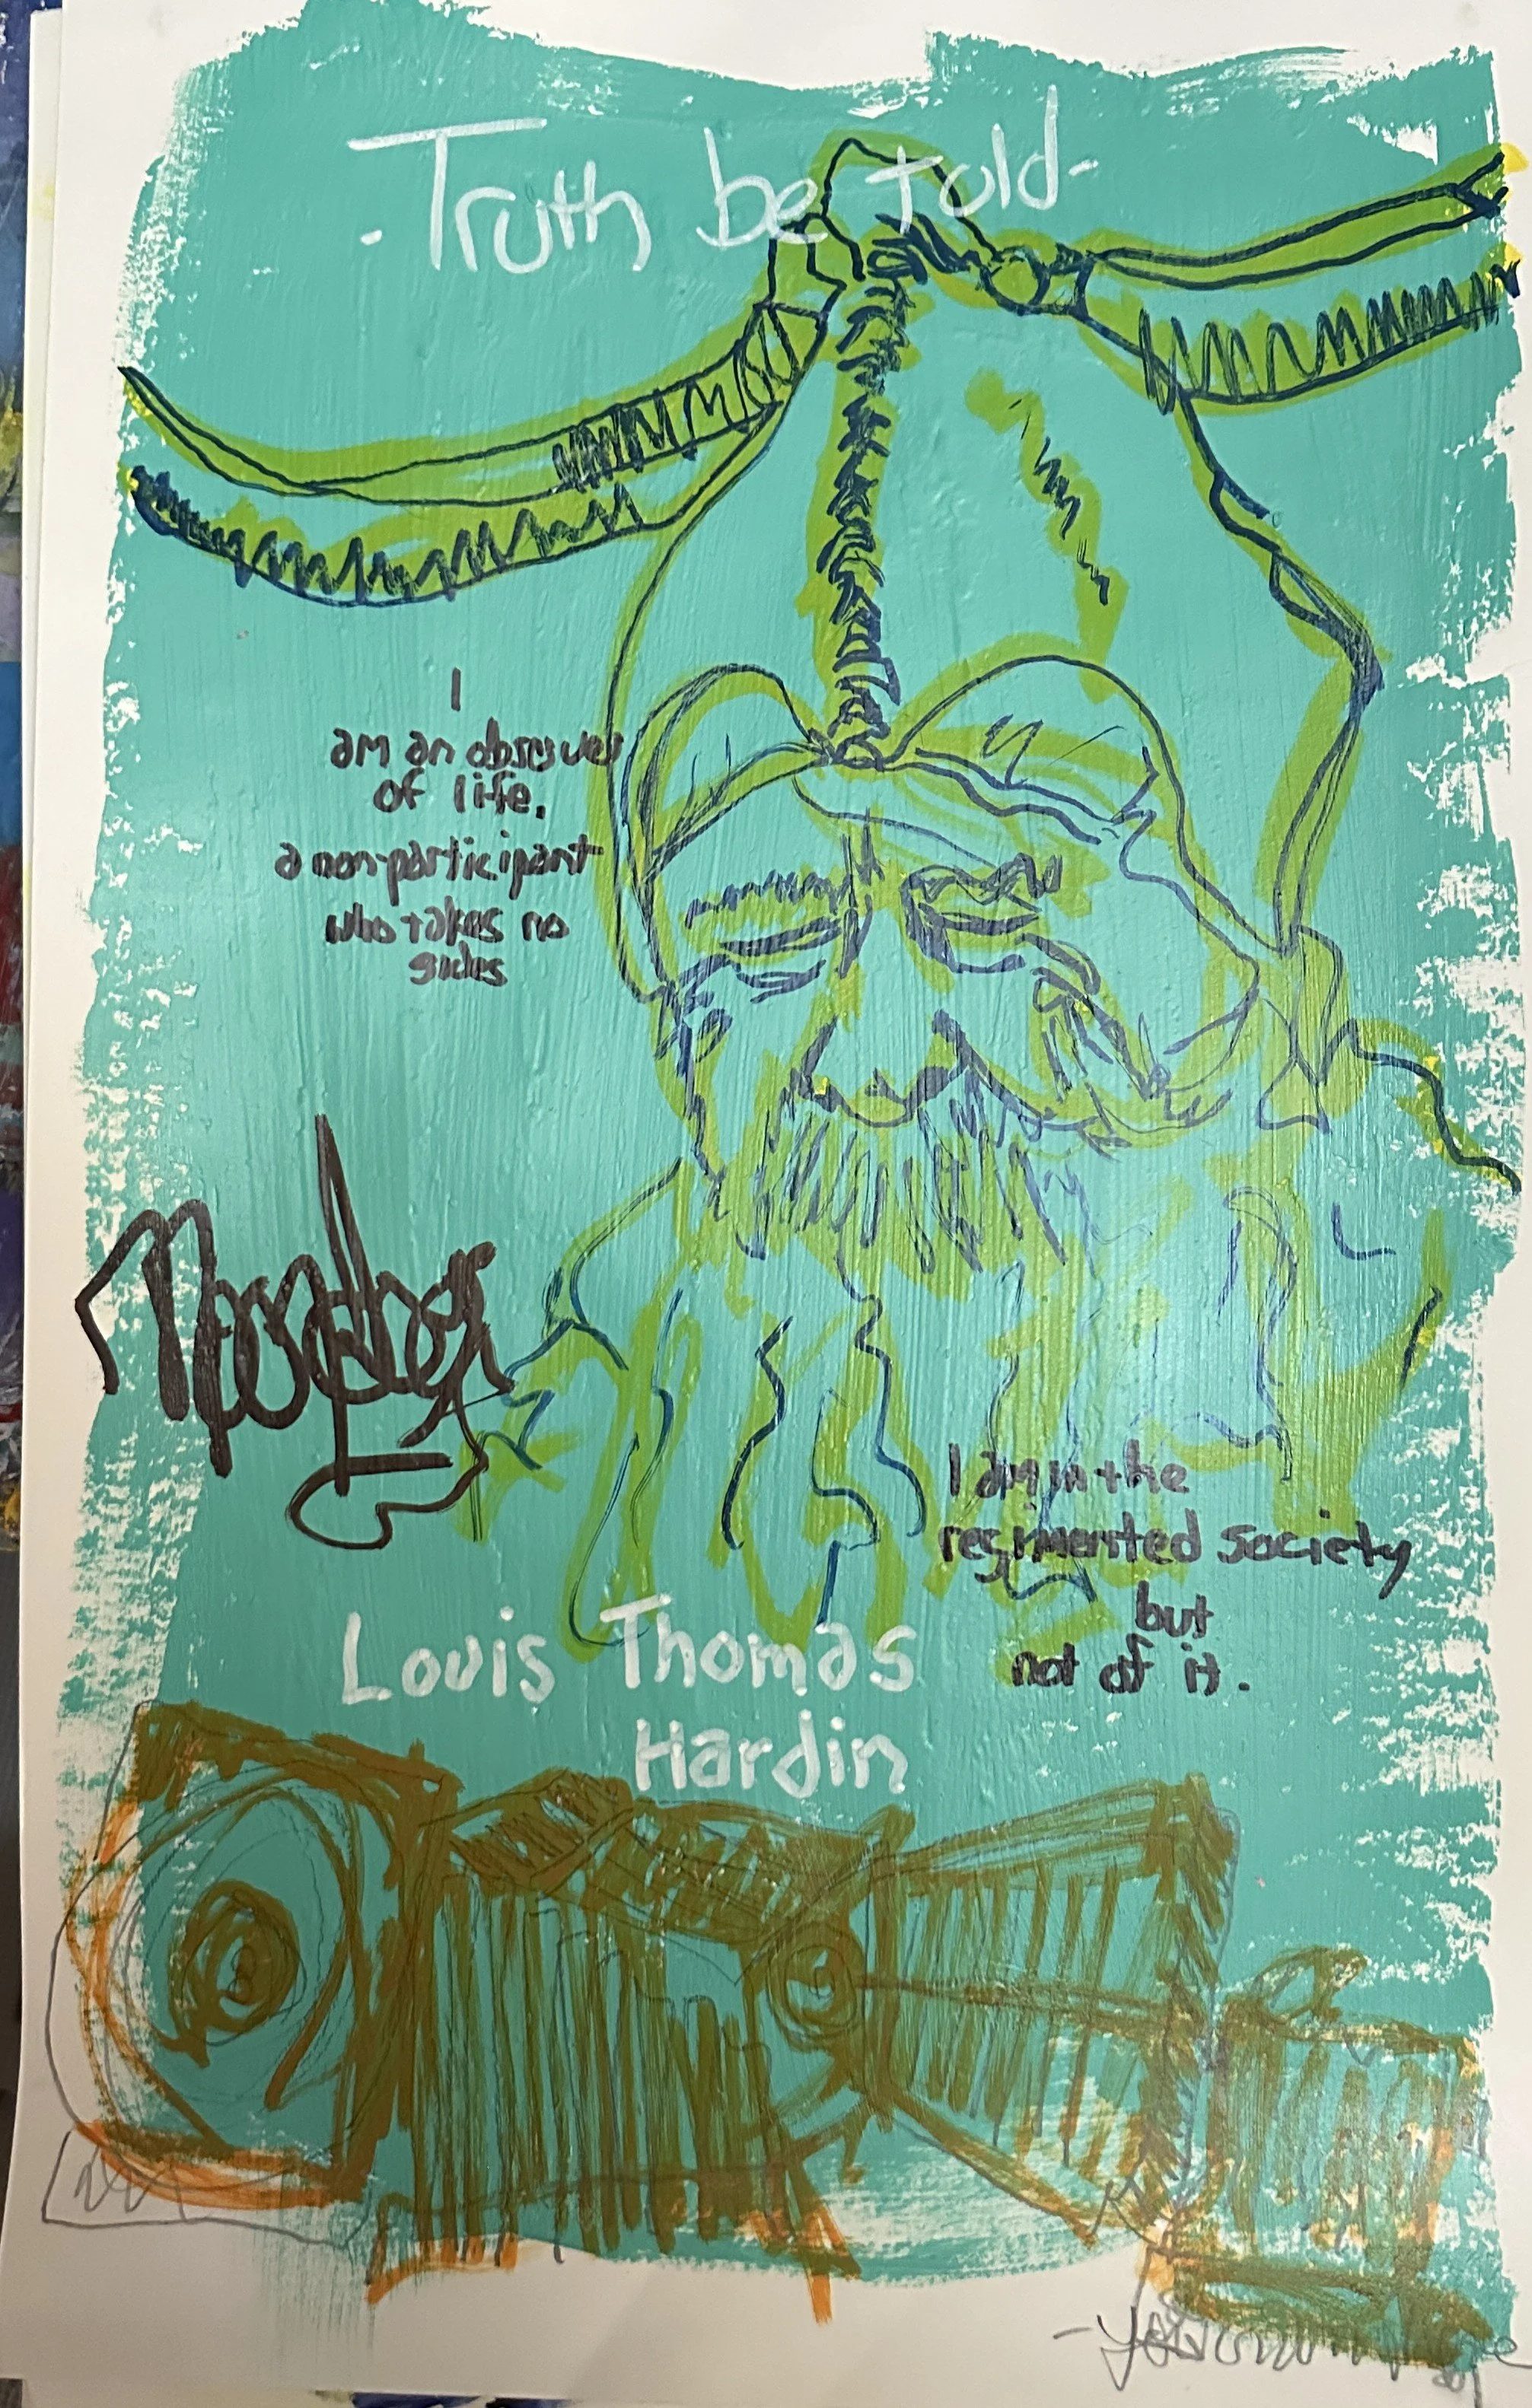 - Truth be told -
I
am an observer
of life,
a non-participant
who takes no
sides
Moondog
I am in the
regimented society
but
not of it.
Louis Thomas
Hardin